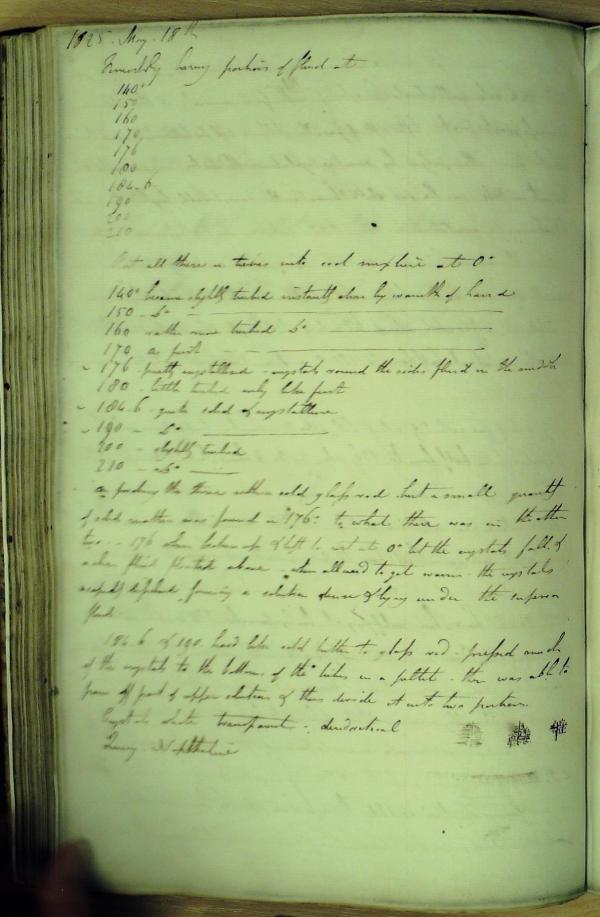 1825. May. 18th
having portions of fluid at
140°
150
160
170
176
180
184.6
190
200
210
Put all these in tubes into cool mixture at 0°
140° became slightly turbid instantly clear by warmth of hand
150 - Do
160 rather more turbid Do
170 as first
176 partly crystallized - crystals round the sides fluid in the middle
180 - little turbid only like first
184.6 - quite solid & crystalline
190 - Do
200 - slightly turbid
210 - Do
On pushing the three with cold glass rod but a small quantity
of solid matter was found in 176° to what there was in the other
two - 176 when taken up & left to rest at 0° let the crystals fall &
a clear fluid floated above - when allowed to get warm the crystals
forming a solution dense & lying under the superior
fluid
184.6 & 190 hard like cold butter to glass rod - pressed much
of the crystals to the bottom of the tubes in a - then was able to
pour off part of upper solution & thus divide it into two portions
Crystals white transparent - dendritical
Query - Napthaline